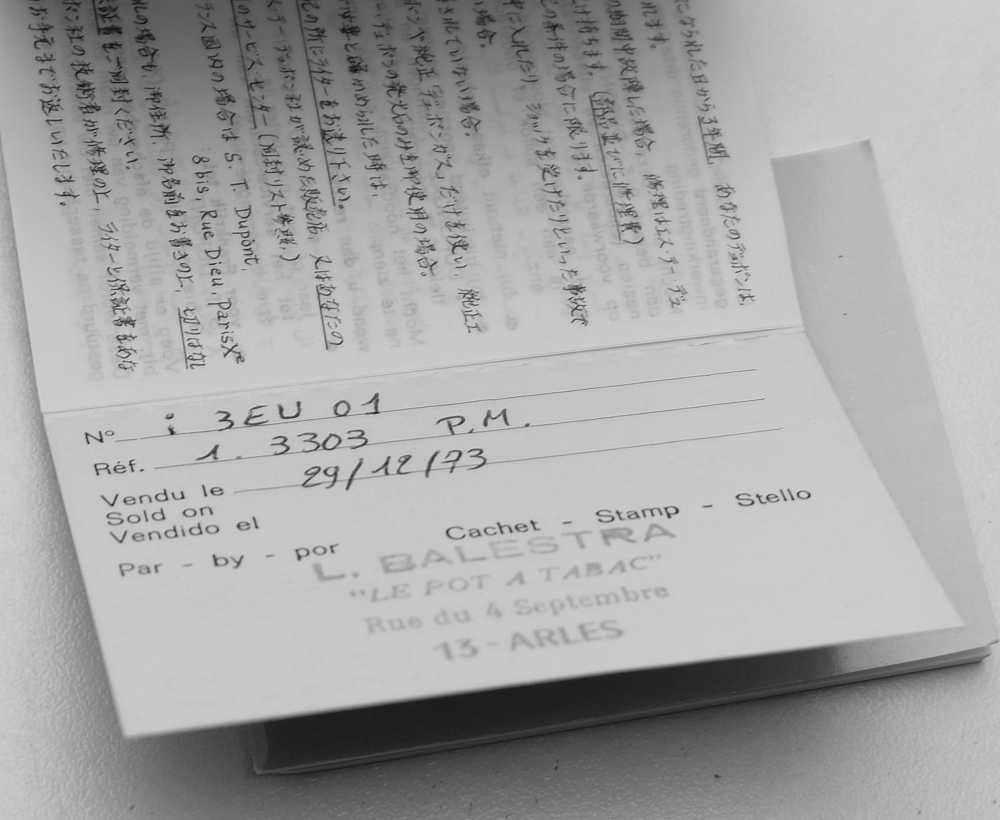 になられた日から3年間、あなたのデュポンは、
れます。
の期間中故障した場合、修理はエス・テー・デュ
け持ちます。(部品並びに修理費)
の条件の場合に限ります。
中に入れたり、ショックを受けたりといった事故で
場合。
されていない場合。
純正デュポンガスだけを使い、純正エ
デュポンの発火石のみを御使用の場合。
と認められた時は、
の所にライターをお送り下さい。
テー・デュポン社が認めた販売店、又はあなたの
のサービス・センター(同封リスト参照。)
ランス国内の場合は S. T. Dupont,
8 bis, Rue Dieu, Paris Xe
の場合も、御住所、御名前をお書きの上、切りはなし
証書を同封ください。
ポン社の技術者が修理の上、ライターと保証書をあな
お手元までお返しいたします。
N° : 3EU 01
Réf. 1. 3303 P.M.
Vendu le 29/12/73
Sold on
Vendido el
Cachet - Stamp - Stello
Par - by - por
L. BALESTRA
"LE POT A TABAC"
Rue du 4 Septembre
13 - ARLES